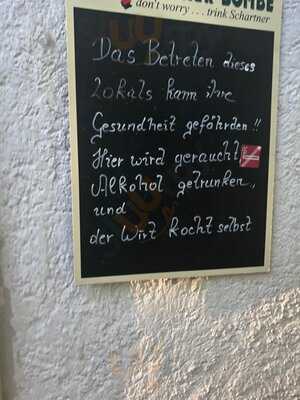 BOMBE
don't worry ... trink Schartner
Das Betreten dieses
Lokals kann ihre
Gesundheit gefährden!!
Hier wird geraucht,
Alkohol getrunken,
und
der Wirt kocht selbst